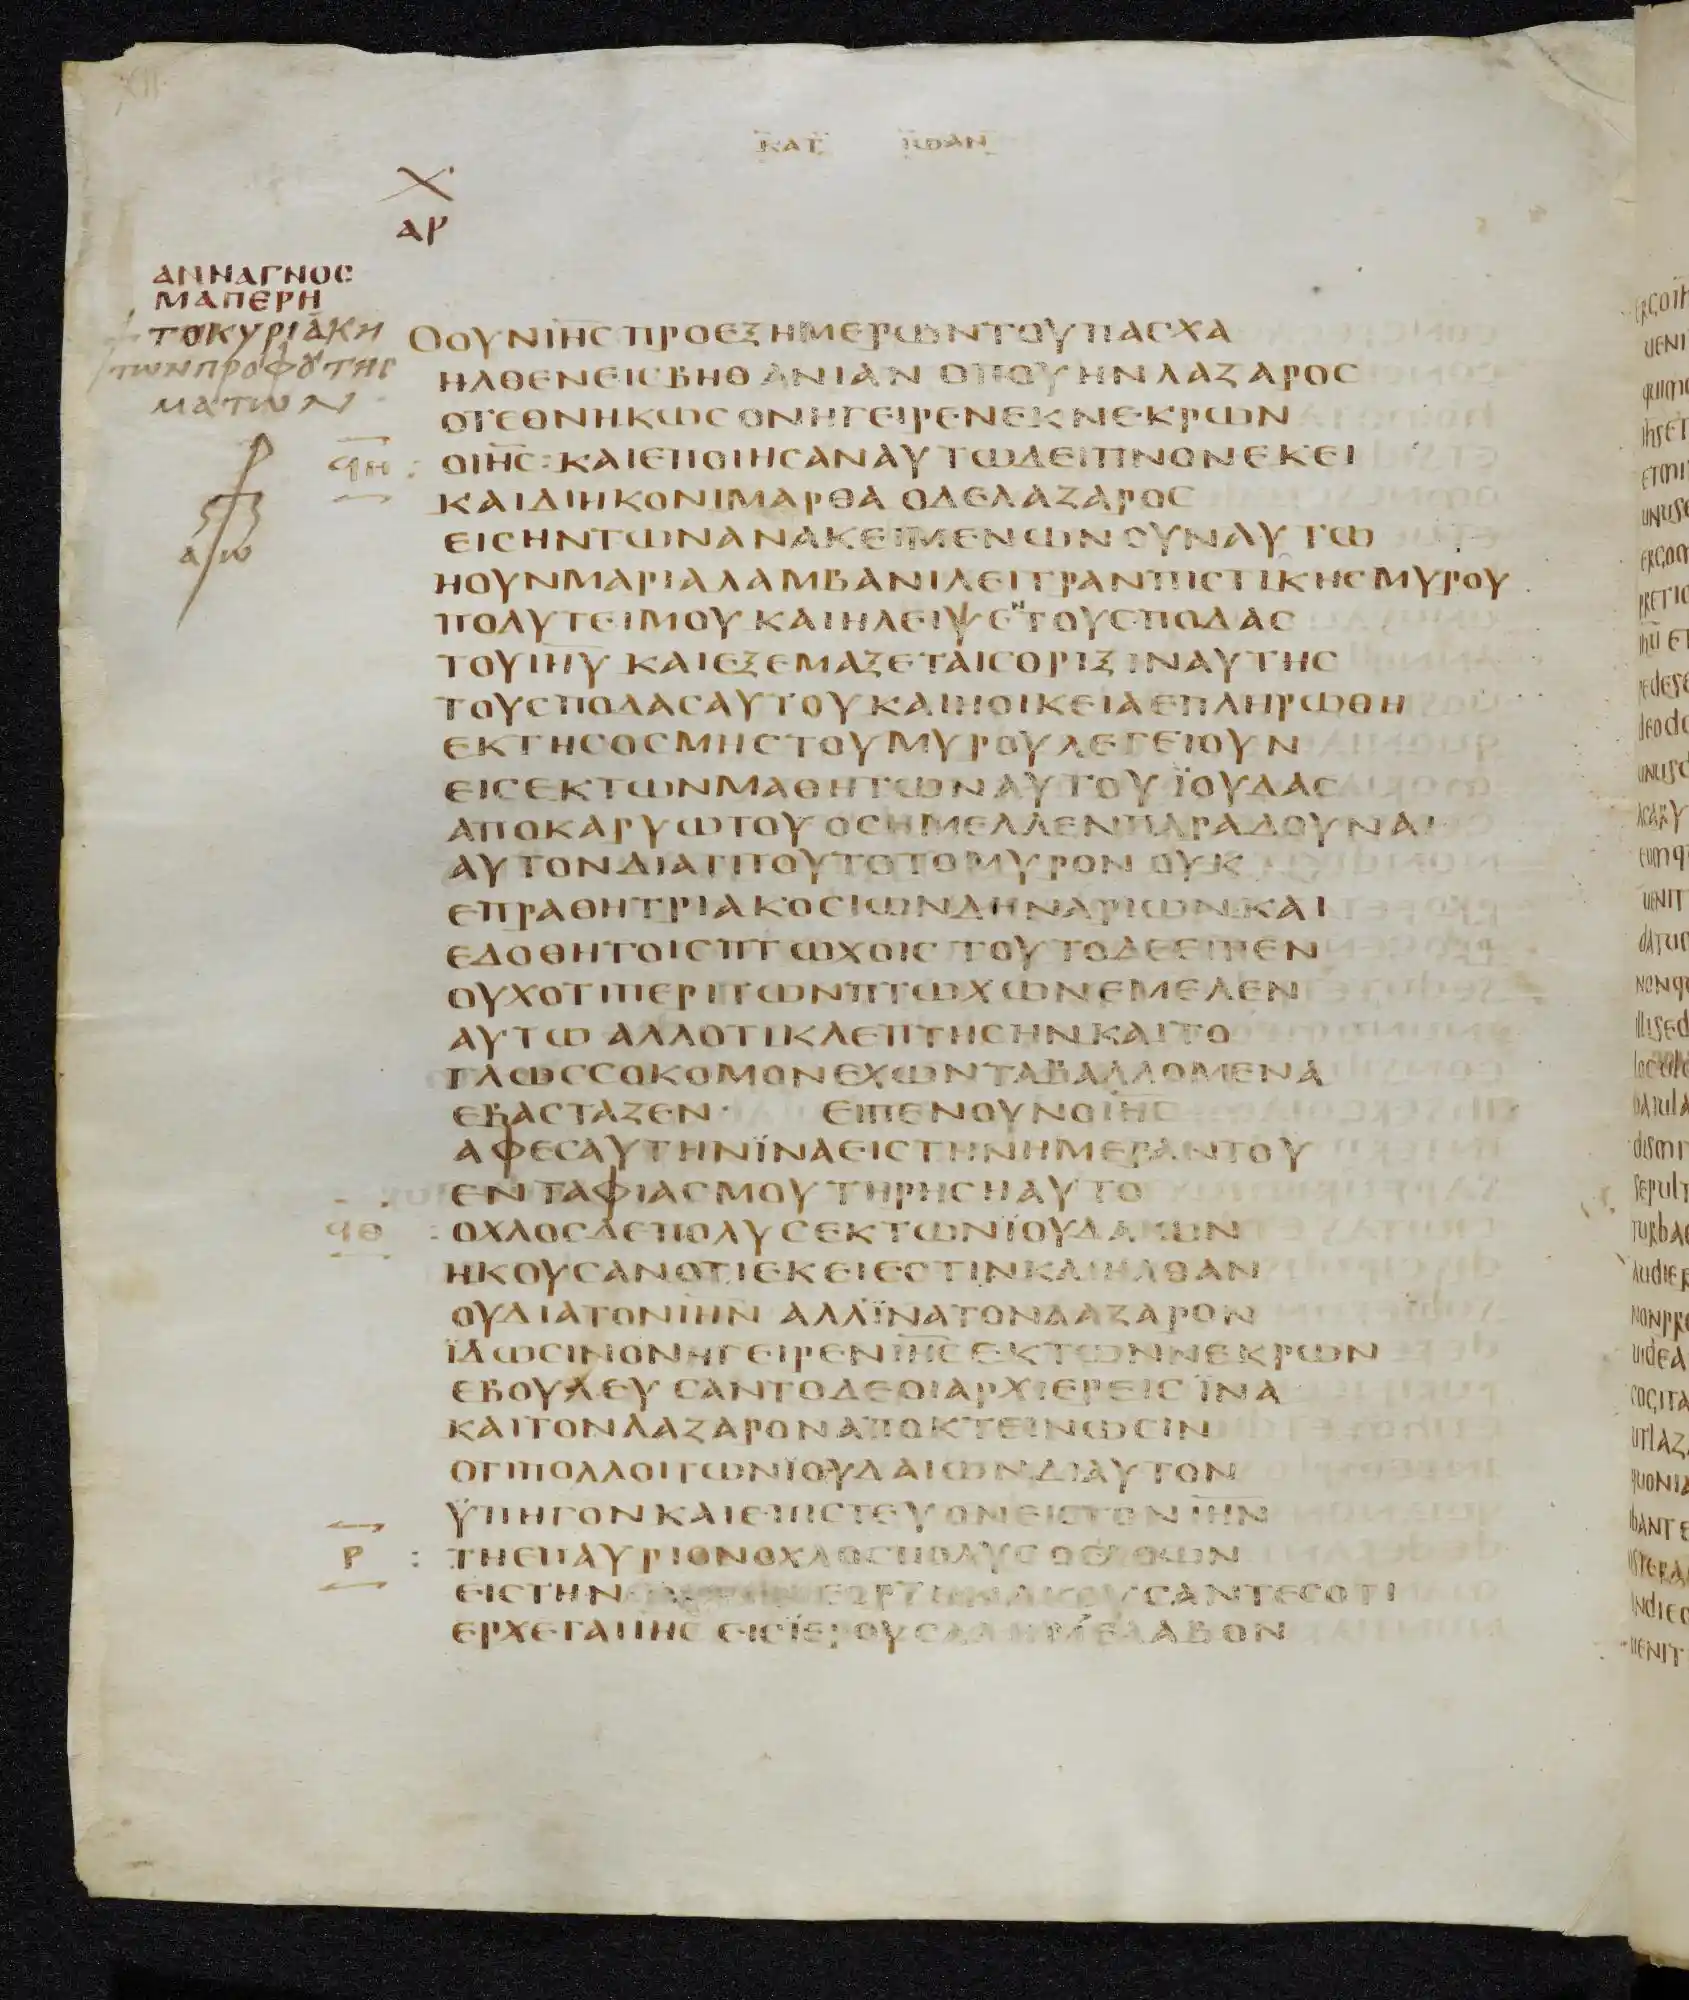 ΚΑΤ ΙΩΑΝ
Χ
ΑΡ
ΑΝΝΑΓΝΟΣ
ΜΑΠΕΡΗ
ΤΟΚΥΡΙΑΚΗ
ΤΩΝΠΡΟΦΟΥΤΗΣ
ΜΑΤΩΝ
Α Ω
ΟΟΥΝΙΗΣΠΡΟΕΞΗΜΕΡΩΝΤΟΥΠΑΣΧΑ
ΗΛΘΕΝΕΙΣΒΗΘΑΝΙΑΝ ΟΠΟΥΗΝΛΑΖΑΡΟΣ
ΟΤΕΘΝΗΚΩΣΟΝΗΓΕΙΡΕΝΕΚΝΕΚΡΩΝ
ϟΗ : ΟΙΗΣ:ΚΑΙΕΠΟΙΗΣΑΝΑΥΤΩΔΕΙΠΝΟΝΕΚΕΙ
ΚΑΙΔΙΗΚΟΝΙΜΑΡΘΑ ΟΔΕΛΑΖΑΡΟΣ
ΕΙΣΗΝΤΩΝΑΝΑΚΕΙΜΕΝΩΝΣΥΝΑΥΤΩ
ΗΟΥΝΜΑΡΙΑΛΑΜΒΑΝΙΛΕΙΤΡΑΝΠΙΣΤΙΚΗΣΜΥΡΟΥ
ΠΟΛΥΤΕΙΜΟΥΚΑΙΗΛΕΙΨΕΝΤΟΥΣΠΟΔΑΣ
ΤΟΥΙΗΥ ΚΑΙΕΞΕΜΑΞΕΤΑΙΣΘΡΙΞΙΝΑΥΤΗΣ
ΤΟΥΣΠΟΔΑΣΑΥΤΟΥΚΑΙΗΟΙΚΕΙΑΕΠΛΗΡΩΘΗ
ΕΚΤΗΣΟΣΜΗΣΤΟΥΜΥΡΟΥΛΕΓΕΙΟΥΝ
ΕΙΣΕΚΤΩΝΜΑΘΗΤΩΝΑΥΤΟΥΪΟΥΔΑΣ
ΑΠΟΚΑΡΥΩΤΟΥΟΣΗΜΕΛΛΕΝΠΑΡΑΔΟΥΝΑΙ
ΑΥΤΟΝΔΙΑΤΙΤΟΥΤΟΤΟΜΥΡΟΝ ΟΥΚ
ΕΠΡΑΘΗΤΡΙΑΚΟΣΙΩΝΔΗΝΑΡΙΩΝΚΑΙ
ΕΔΟΘΗΤΟΙΣΠΤΩΧΟΙΣ ΤΟΥΤΟΔΕΕΙΠΕΝ
ΟΥΧΟΤΙΠΕΡΙΤΩΝΠΤΩΧΩΝΕΜΕΛΕΝ
ΑΥΤΩ ΑΛΛΟΤΙΚΛΕΠΤΗΣΗΝΚΑΙΤΟ
ΓΛΩΣΣΟΚΟΜΟΝΕΧΩΝΤΑΒΑΛΛΟΜΕΝΑ
ΕΒΑΣΤΑΖΕΝ· ΕΙΠΕΝΟΥΝΟΙΗΣ
ΑΦΕΣΑΥΤΗΝΪΝΑΕΙΣΤΗΝΗΜΕΡΑΝΤΟΥ
ΕΝΤΑΦΙΑΣΜΟΥΤΗΡΗΣΗΑΥΤΟ
ϟΘ : ΟΧΛΟΣΔΕΠΟΛΥΣΕΚΤΩΝΪΟΥΔΑΙΩΝ
ΗΚΟΥΣΑΝΟΤΙΕΚΕΙΕΣΤΙΝΚΑΙΗΛΘΑΝ
ΟΥΔΙΑΤΟΝΙΗΝ ΑΛΛΪΝΑΤΟΝΛΑΖΑΡΟΝ
ΪΔΩΣΙΝΟΝΗΓΕΙΡΕΝΙΗΣΕΚΤΩΝΝΕΚΡΩΝ
ΕΒΟΥΛΕΥΣΑΝΤΟΔΕΟΙΑΡΧΙΕΡΕΙΣΪΝΑ
ΚΑΙΤΟΝΛΑΖΑΡΟΝΑΠΟΚΤΕΙΝΩΣΙΝ
ΟΤΙΠΟΛΛΟΙΤΩΝΪΟΥΔΑΙΩΝΔΙΑΥΤΟΝ
ΫΠΗΓΟΝΚΑΙΕΠΙΣΤΕΥΟΝΕΙΣΤΟΝΙΗΝ
Ρ : ΤΗΕΠΑΥΡΙΟΝΟΧΛΟΣΠΟΛΥΣΟΕΛΘΩΝ
ΕΙΣΤΗΝ ΕΟΡΤΗΝΑΚΟΥΣΑΝΤΕΣΟΤΙ
ΕΡΧΕΤΑΙΙΗΣ ΕΙΣΪΕΡΟΥΣΑΛΗΜΕΛΑΒΟΝ